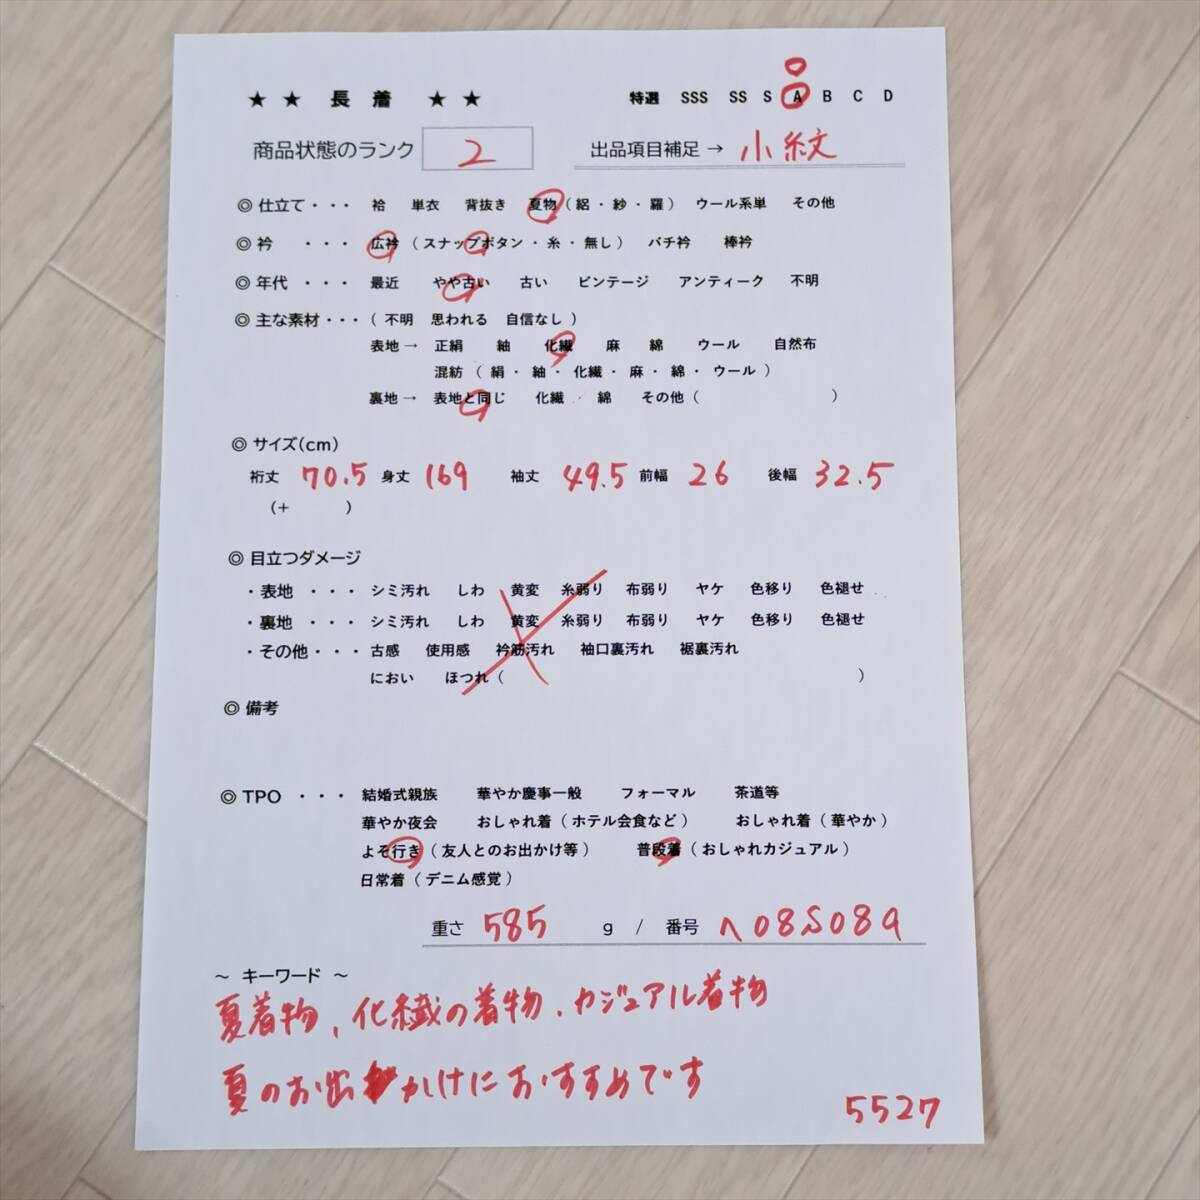 ★ ★ 長 着 ★ ★ 特選 SSS SS S A B C D
商品状態のランク 2 出品項目補足 → 小紋
◎ 仕立て・・・ 袷 単衣 背抜き 夏物 ( 絽 ・ 紗 ・ 羅 ) ウール系単 その他
◎ 衿 ・・・ 広衿 ( スナップボタン ・ 糸 ・ 無し ) バチ衿 棒衿
◎ 年代 ・・・ 最近 やや古い 古い ビンテージ アンティーク 不明
◎ 主な素材・・・ ( 不明 思われる 自信なし )
表地 → 正絹 紬 化繊 麻 綿 ウール 自然布
混紡 ( 絹 ・ 紬 ・ 化繊 ・ 麻 ・ 綿 ・ ウール )
裏地 → 表地と同じ 化繊 綿 その他 ( )
◎ サイズ(cm)
裄丈 70.5 身丈 169 袖丈 49.5 前幅 26 後幅 32.5
(+ )
◎ 目立つダメージ
・表地 ・・・ シミ汚れ しわ 黄変 糸弱り 布弱り ヤケ 色移り 色褪せ
・裏地 ・・・ シミ汚れ しわ 黄変 糸弱り 布弱り ヤケ 色移り 色褪せ
・その他・・・ 古感 使用感 衿筋汚れ 袖口裏汚れ 裾裏汚れ
におい ほつれ ( )
◎ 備考
◎ TPO ・・・ 結婚式親族 華やか慶事一般 フォーマル 茶道等
華やか夜会 おしゃれ着 ( ホテル会食など ) おしゃれ着 ( 華やか )
よそ行き ( 友人とのお出かけ等 ) 普段着 ( おしゃれカジュアル )
日常着 ( デニム感覚 )
重さ 585 g / 番号
～ キーワード ～
夏着物、化繊の着物、カジュアル着物
夏のお出かけにおすすめです
5527